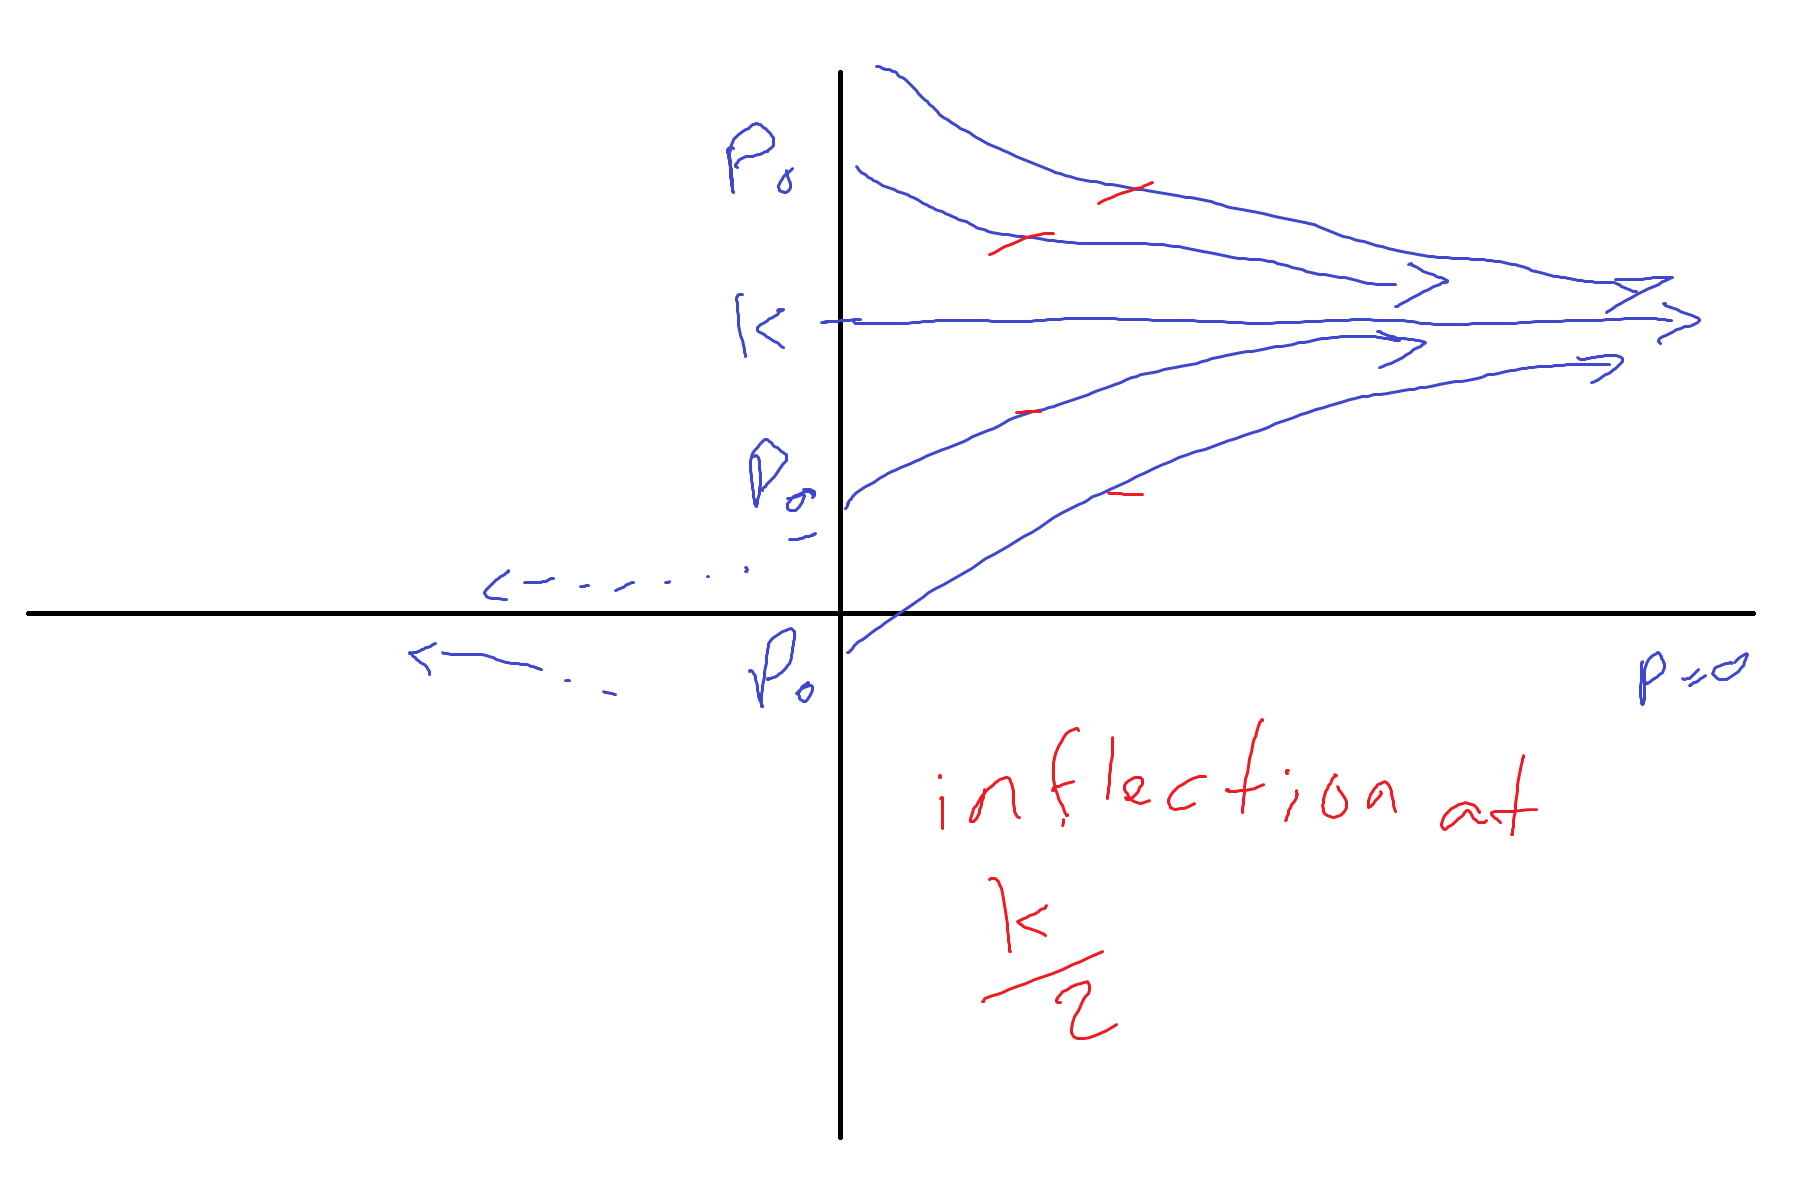 P₀
K
P₀
P₀
P=0
inflection at
k/2